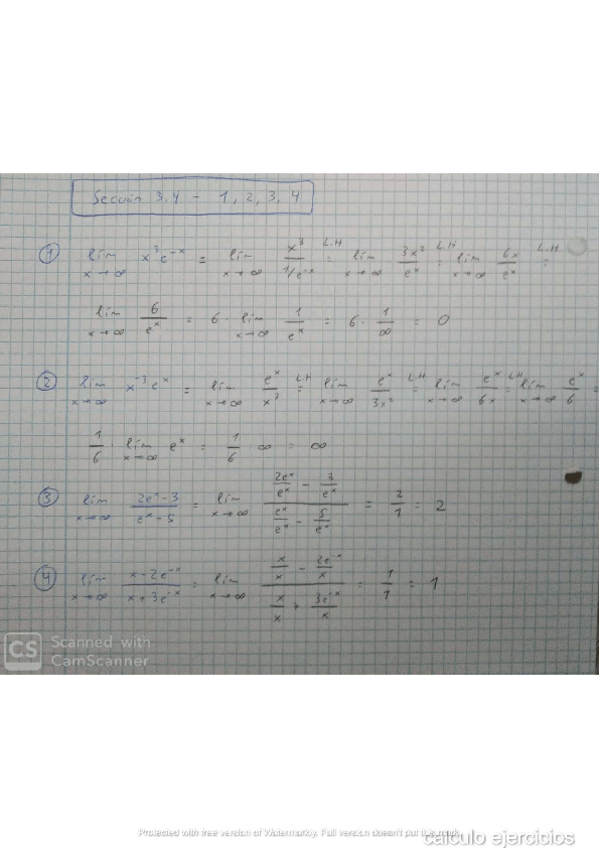 Sección 3.4 - 1, 2, 3, 4
① lim x→∞ x³e⁻ˣ = lim x→∞ x³/(1/e⁻ˣ) L.H = lim x→∞ 3x²/eˣ L.H = lim x→∞ 6x/eˣ L.H =
lim x→∞ 6/eˣ = 6 · lim x→∞ 1/eˣ = 6 · 1/∞ = 0
② lim x→∞ x⁻³eˣ = lim x→∞ eˣ/x³ L.H = lim x→∞ eˣ/3x² L.H = lim x→∞ eˣ/6x L.H = lim x→∞ eˣ/6 =
1/6 · lim x→∞ eˣ = 1/6 · ∞ = ∞
③ lim x→∞ (2eˣ-3)/(eˣ-5) = lim x→∞ (2eˣ/eˣ - 3/eˣ)/(eˣ/eˣ - 5/eˣ) = 2/1 = 2
④ lim x→∞ (x-2e⁻ˣ)/(x+3e⁻ˣ) = lim x→∞ (x/x - 2e⁻ˣ/x)/(x/x + 3e⁻ˣ/x) = 1/1 = 1
CS Scanned with
CamScanner
Protected with free version of Watermarkly. Full version doesn't put this mark.
calculo ejercicios